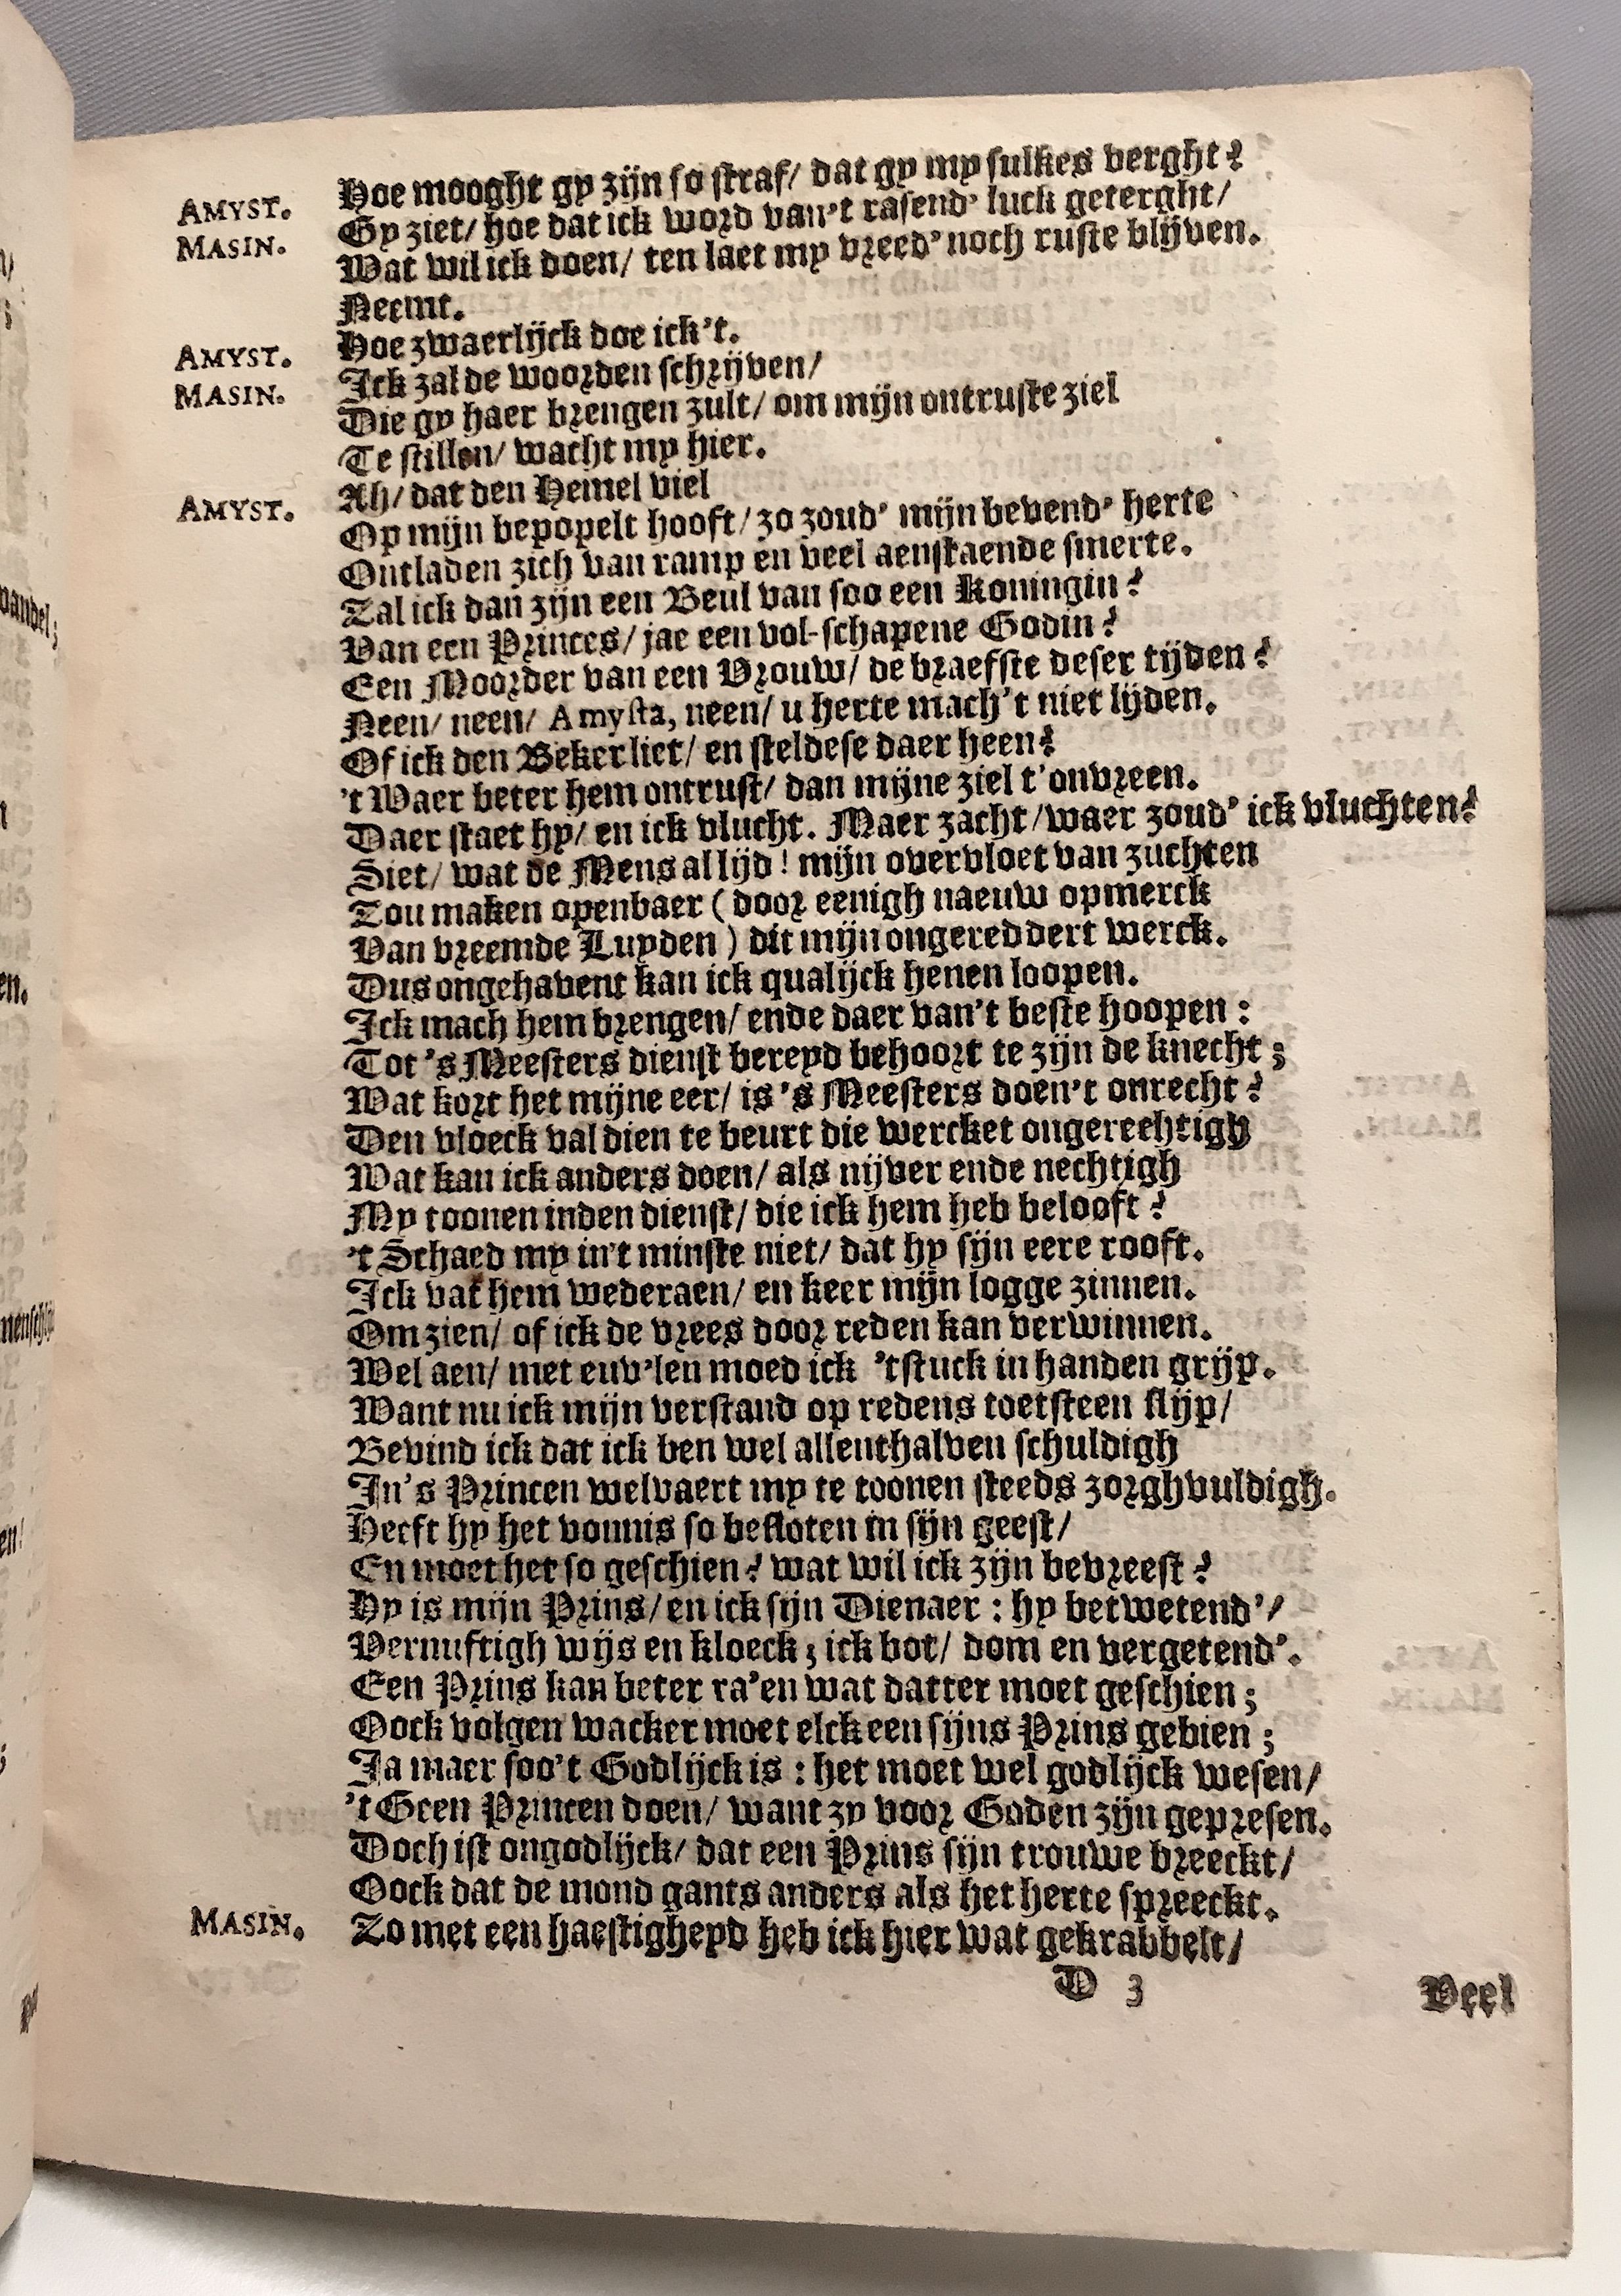 AMYST. Hoe mooght gy zijn so straf/ dat gy my sulkes verght?
MASIN. Gy ziet/ hoe dat ick word van't rasend' luck geterght/
Wat wil ick doen/ ten laet my vreed' noch ruste blijven.
Neemt.
AMYST. Hoe zwaerlijck doe ick't.
MASIN. Ick zal de woorden schrijven/
Die gy haer brengen zult/ om mijn ontruste ziel
Te stillen/ wacht my hier.
AMYST. Ah/ dat den Hemel viel
Op mijn bepopelt hooft/ zo zoud' mijn bevend' herte
Ontladen zich van ramp en veel aenstaende smerte.
Zal ick dan zijn een Beul van soo een Koningin?
Van een Princes/ jae een vol-schapene Godin?
Een Moorder van een Vrouw/ de braefste deser tijden?
Neen/ neen/ Amysta, neen/ u herte mach't niet lijden.
Of ick den Beker liet/ en steldese daer heen?
't Waer beter hem ontrust/ dan mijne ziel t'onvreen.
Daer staet hy/ en ick vlucht. Maer zacht/ waer zoud' ick vluchten?
Siet/ wat de Mens al lijd! mijn overvloet van zuchten
Zou maken openbaer (door eenigh naeuw opmerck
Van vreemde Luyden) dit mijn ongereddert werck.
Dus ongehavent kan ick qualijck henen loopen.
Ick mach hem brengen/ ende daer van't beste hoopen:
Tot 's Meesters dienst bereyd behoort te zijn de knecht;
Wat kort het mijne eer/ is 's Meesters doen't onrecht?
Den vloeck val dien te beurt die wercket ongerechtigh
Wat kan ick anders doen/ als nijver ende nechtigh
My toonen inden dienst/ die ick hem heb belooft?
't Schaed my in't minste niet/ dat hy sijn eere rooft.
Ick vat hem weder aen/ en keer mijn logge zinnen.
Om zien/ of ick de vrees door reden kan verwinnen.
Wel aen/ met euv'len moed ick 't stuck in handen grijp.
Want nu ick mijn verstand op redens toetsteen slijp/
Bevind ick dat ick ben wel allenthalven schuldigh
In's Princen welvaert my te toonen steeds zorghvuldigh.
Heeft hy het vonnis so besloten in sijn geest/
En moet het so geschien? wat wil ick zijn bevreest?
Hy is mijn Prins/ en ick sijn Dienaer: hy betwetend'/
Vernuftigh wijs en kloeck; ick bot/ dom en vergetend'.
Een Prins kan beter ra'en wat datter moet geschien;
Oock volgen wacker moet elck een sijns Prins gebien;
Ja maer soo't Godlijck is: het moet wel godlijck wesen/
't Geen Princen doen/ want zy voor Goden zijn gepresen.
Doch ist ongodlijck/ dat een Prins sijn trouwe breeckt/
Oock dat de mond gants anders als het herte spreeckt.
MASIN. Zo met een haestigheyd heb ick hier wat gekrabbelt/
D 3 Veel